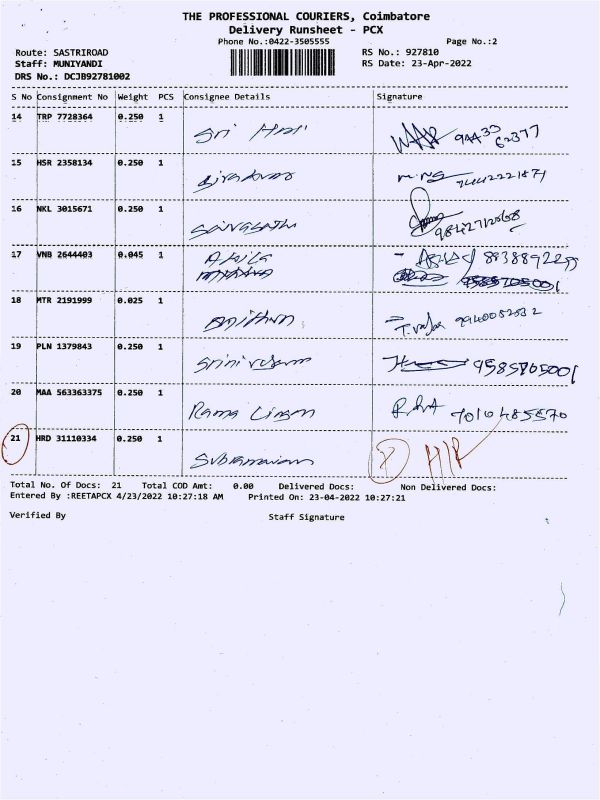 THE PROFESSIONAL COURIERS, Coimbatore
Delivery Runsheet - PCX
Phone No.:0422-3505555 Page No.:2
Route: SASTRIROAD RS No.: 927810
Staff: MUNIYANDI RS Date: 23-Apr-2022
DRS No.: DCJB92781002
S No Consignment No Weight PCS Consignee Details Signature
14 TRP 7728364 0.250 1 Sri Hari 94433
62377
15 HSR 2358134 0.250 1
16 NKL 3015671 0.250 1 9842712068
17 VNB 2644403 0.045 1 Akila 8838892299
18 MTR 2191999 0.025 1 9940052032
19 PLN 1379843 0.250 1 Srinivasan 9585705001
20 MAA 563363375 0.250 1 Rama Lingam 7010485570
21 HRD 31110334 0.250 1 Subramaniam
Total No. Of Docs: 21 Total COD Amt: 0.00 Delivered Docs: Non Delivered Docs:
Entered By :REETAPCX 4/23/2022 10:27:18 AM Printed On: 23-04-2022 10:27:21
Verified By Staff Signature